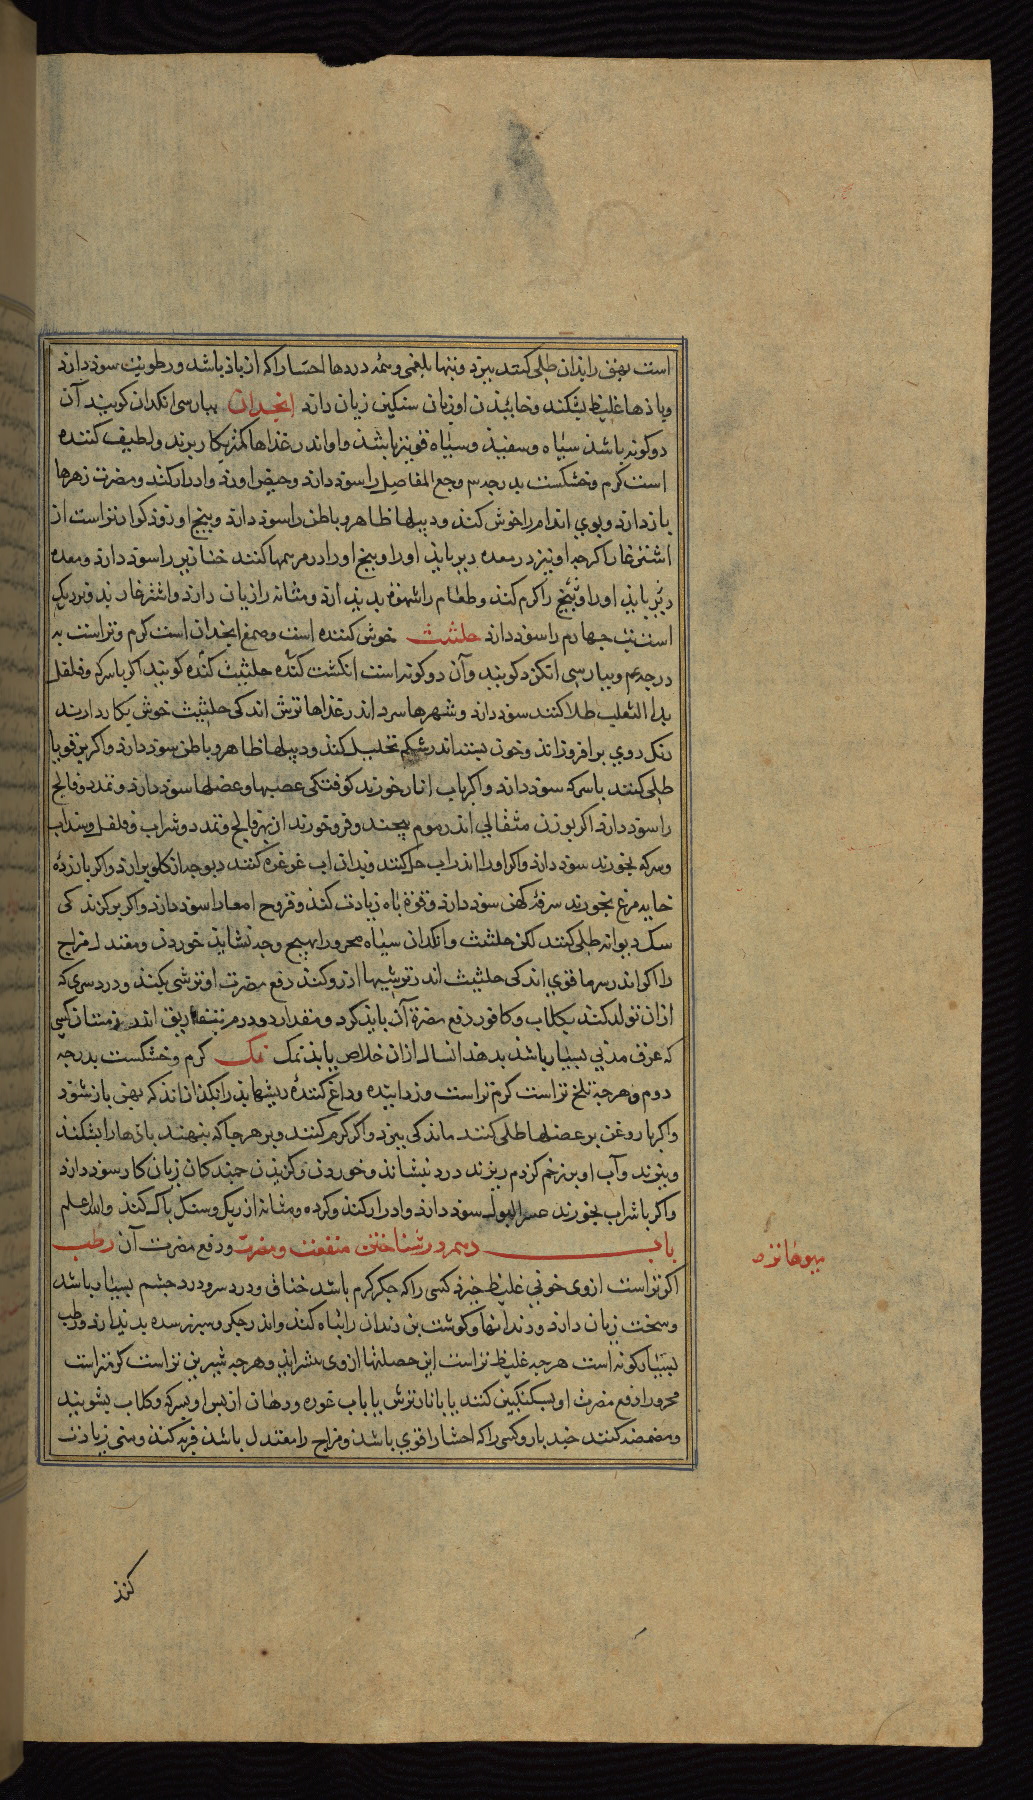 است بهق را بدان طلی کنند ببرد و تنها بلغمی و همه دردها احشا را که از باذ باشد و رطوبت سوذ دارد
و باذها غلیظ بشکند و خاییذن او زیان سنکین زیان دارد انجدان بپارسی انکدان کویند آن
دو کونه باشد سیاه و سفیذ و سیاه قویتر باشد و او اندر غذاها کمتر بکار برند و لطیف کننده
است کرم و خشکست بدرجه سم وجع المفاصل را سوذ دارد و حیض اورد و ادرار کند و مضرت زهرها
باز دارد و بوی اندام را خوش کند و دبیلها ظاهر و باطن را سوذ دارد و بیخ او زوذ کوارنرتر است از
اشترغار اکرچه او نیز در معده دیر بایذ او را و بیخ او را در مرهمها کنند خنازیر را سوذ دارد و معده
دیر بایذ او را و بیخ را کرم کند و طعام را شهوة بدید ارد و مثانه را زیان دارد و اشترغار بذو نزدیک
است تب چهارم را سوذ دارد حلتیث خوش کننده است و صمغ انجدان است کرم و تر است به
درجه سم و بپارسی انکزد کویند و آن دو کونه است انکشت کنده حلتیث کنده کویند اکر با سرکه و فلفل
بداء الثعلب طلا کنند سوذ دارد و شهرها سرد اندر غذاها ترش اندکی حلتیث خوش بکار دارند
رنک روی بر افروزاند و خون بسته اندر شکم تحلیل کند و دبیلها ظاهر و باطن سوذ دارد و اکر بر قوبا
طلی کنند با سرکه سوذ دارد و اکر باب انار خورند کوفتکی عصبها و عضلها سوذ دارد و تمدد و فالج
را سوذ دارد اکر بوزن مثقالی اندر موم پیچند و فرو خورند از بهر فالج و تمدد و شراب و فلفل و سنداب
و سرکه بخورند سوذ دارد و اکر او را اندر اب حل کنند و بدان اب غرغره کنند دیوچه از کلو برارد و اکر با زرده
خایه مرغ بخورند سرفه کهن سوذ دارد و قوة باه زیادت کند و قروح امعا را سوذ دارد و اکر بر کزند کی
سک دیوانه طلی کنند لکن حلتیث و انکدان سیاه محرور را بهیچ وجه نشاید خوردن و معتدل مزاج
را اکر اندر سرما قوی اندکی حلتیث اندر ترشیها ارزو کند دفع مضرت او ترشی بکند و دردسری که
ازان تولد کند بکلاب و کافور دفع مضرة آن باید کرد و مقدار دو درم بنفا ریق اندر زمستان کسی
که عرق مدنی بسیار باشد بدهند انسال ازان خلاص یابد نمک نمک کرم و خشکست بدرجه
دوم و هرچه تلخ تر است کرم تر است و زداینده و داغ کننده ریشها بذ را بکذازاند که بهنی باز شوذ
و اکر با روغن بر عضلها طلی کنند ماندکی ببرد و اکر کرم کنند و بر هر جا که بنهند باذها را بشکند
و ببرند و آب او بر زخم کژدم ریزند درد بنشاند و خوردن و کزیدن چیندکان زبان کار سوذ دارد
و اکر با شراب بخورند عسر البول سوذ دارد و ادرار کند و کرده و مثانه از ریک و سنک باک کند والله اعلم
باب دهم در شناختن منفعت و مضرت و دفع مضرت آن رطب
اکر تر است ازوی خونی غلیظ خیزد کسی را که جکر کرم باشد خناق و درد سر و درد چشم بسیار باشد
و سخت زیان دارد و دندانها و کوشت بن دندان را تباه کند و اندر جکر و سپرز سده بدیذ ارد و رطب
بسیار کونه است هرچه غلیظ تر است این خصلتها ازوی بیشتر اید و هرچه شیرین تر است کرمتر است
محرور را دفع مضرت او بسکنکبین کنند یا بانار ترش یا باب غوره و دهان از بس او بسرکه و کلاب بشویند
و مضمضه کنند چند بار و کسی را که احشا را قوی باشد و مزاج را معتدل باشد فربه کند و منی زیادت
میوهاء تره
کند